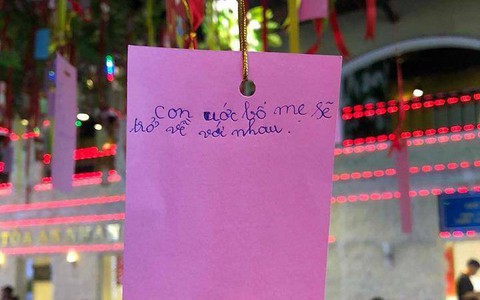 Con ước bố mẹ sẽ
trở về với nhau.
TÒA ÁN NHÂN